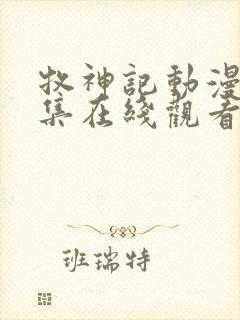 牧神記動漫
集在綫觀看
班瑞特